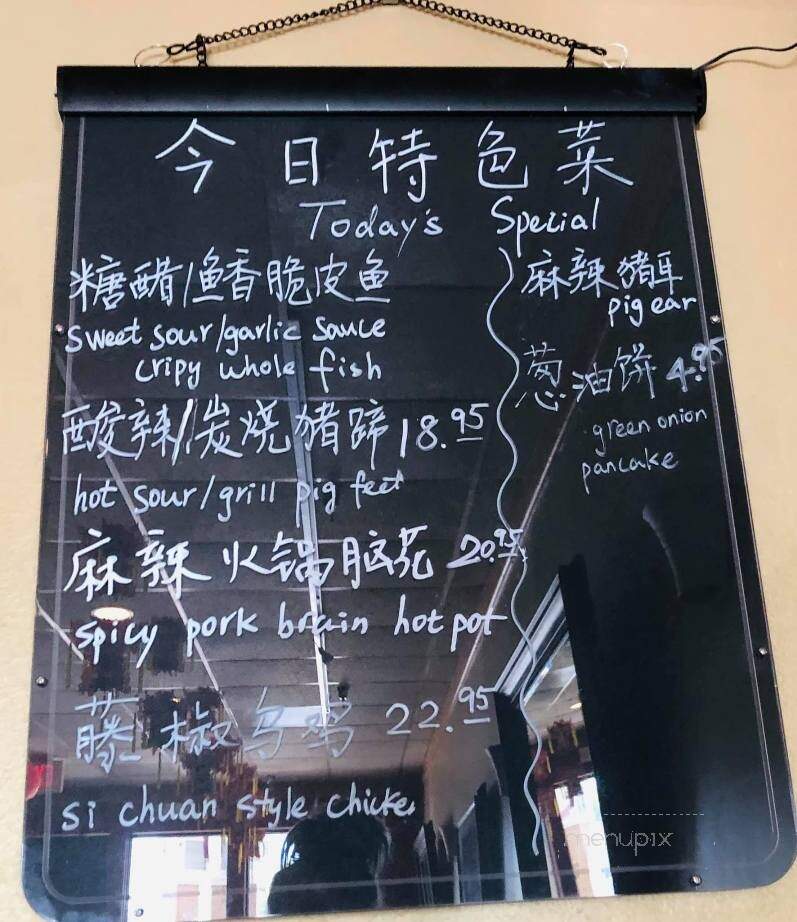 今日特色菜
Today's Special
糖醋/鱼香脆皮鱼
sweet sour/garlic sauce
cripy whole fish
酸辣/炭烧猪蹄 18.95
hot sour/grill pig feet
麻辣火锅脑花 20.95
spicy pork brain hot pot
藤椒乌鸡 22.95
si chuan style chicken
麻辣猪耳
pig ear
葱油饼 4.95
green onion
pancake
menupix